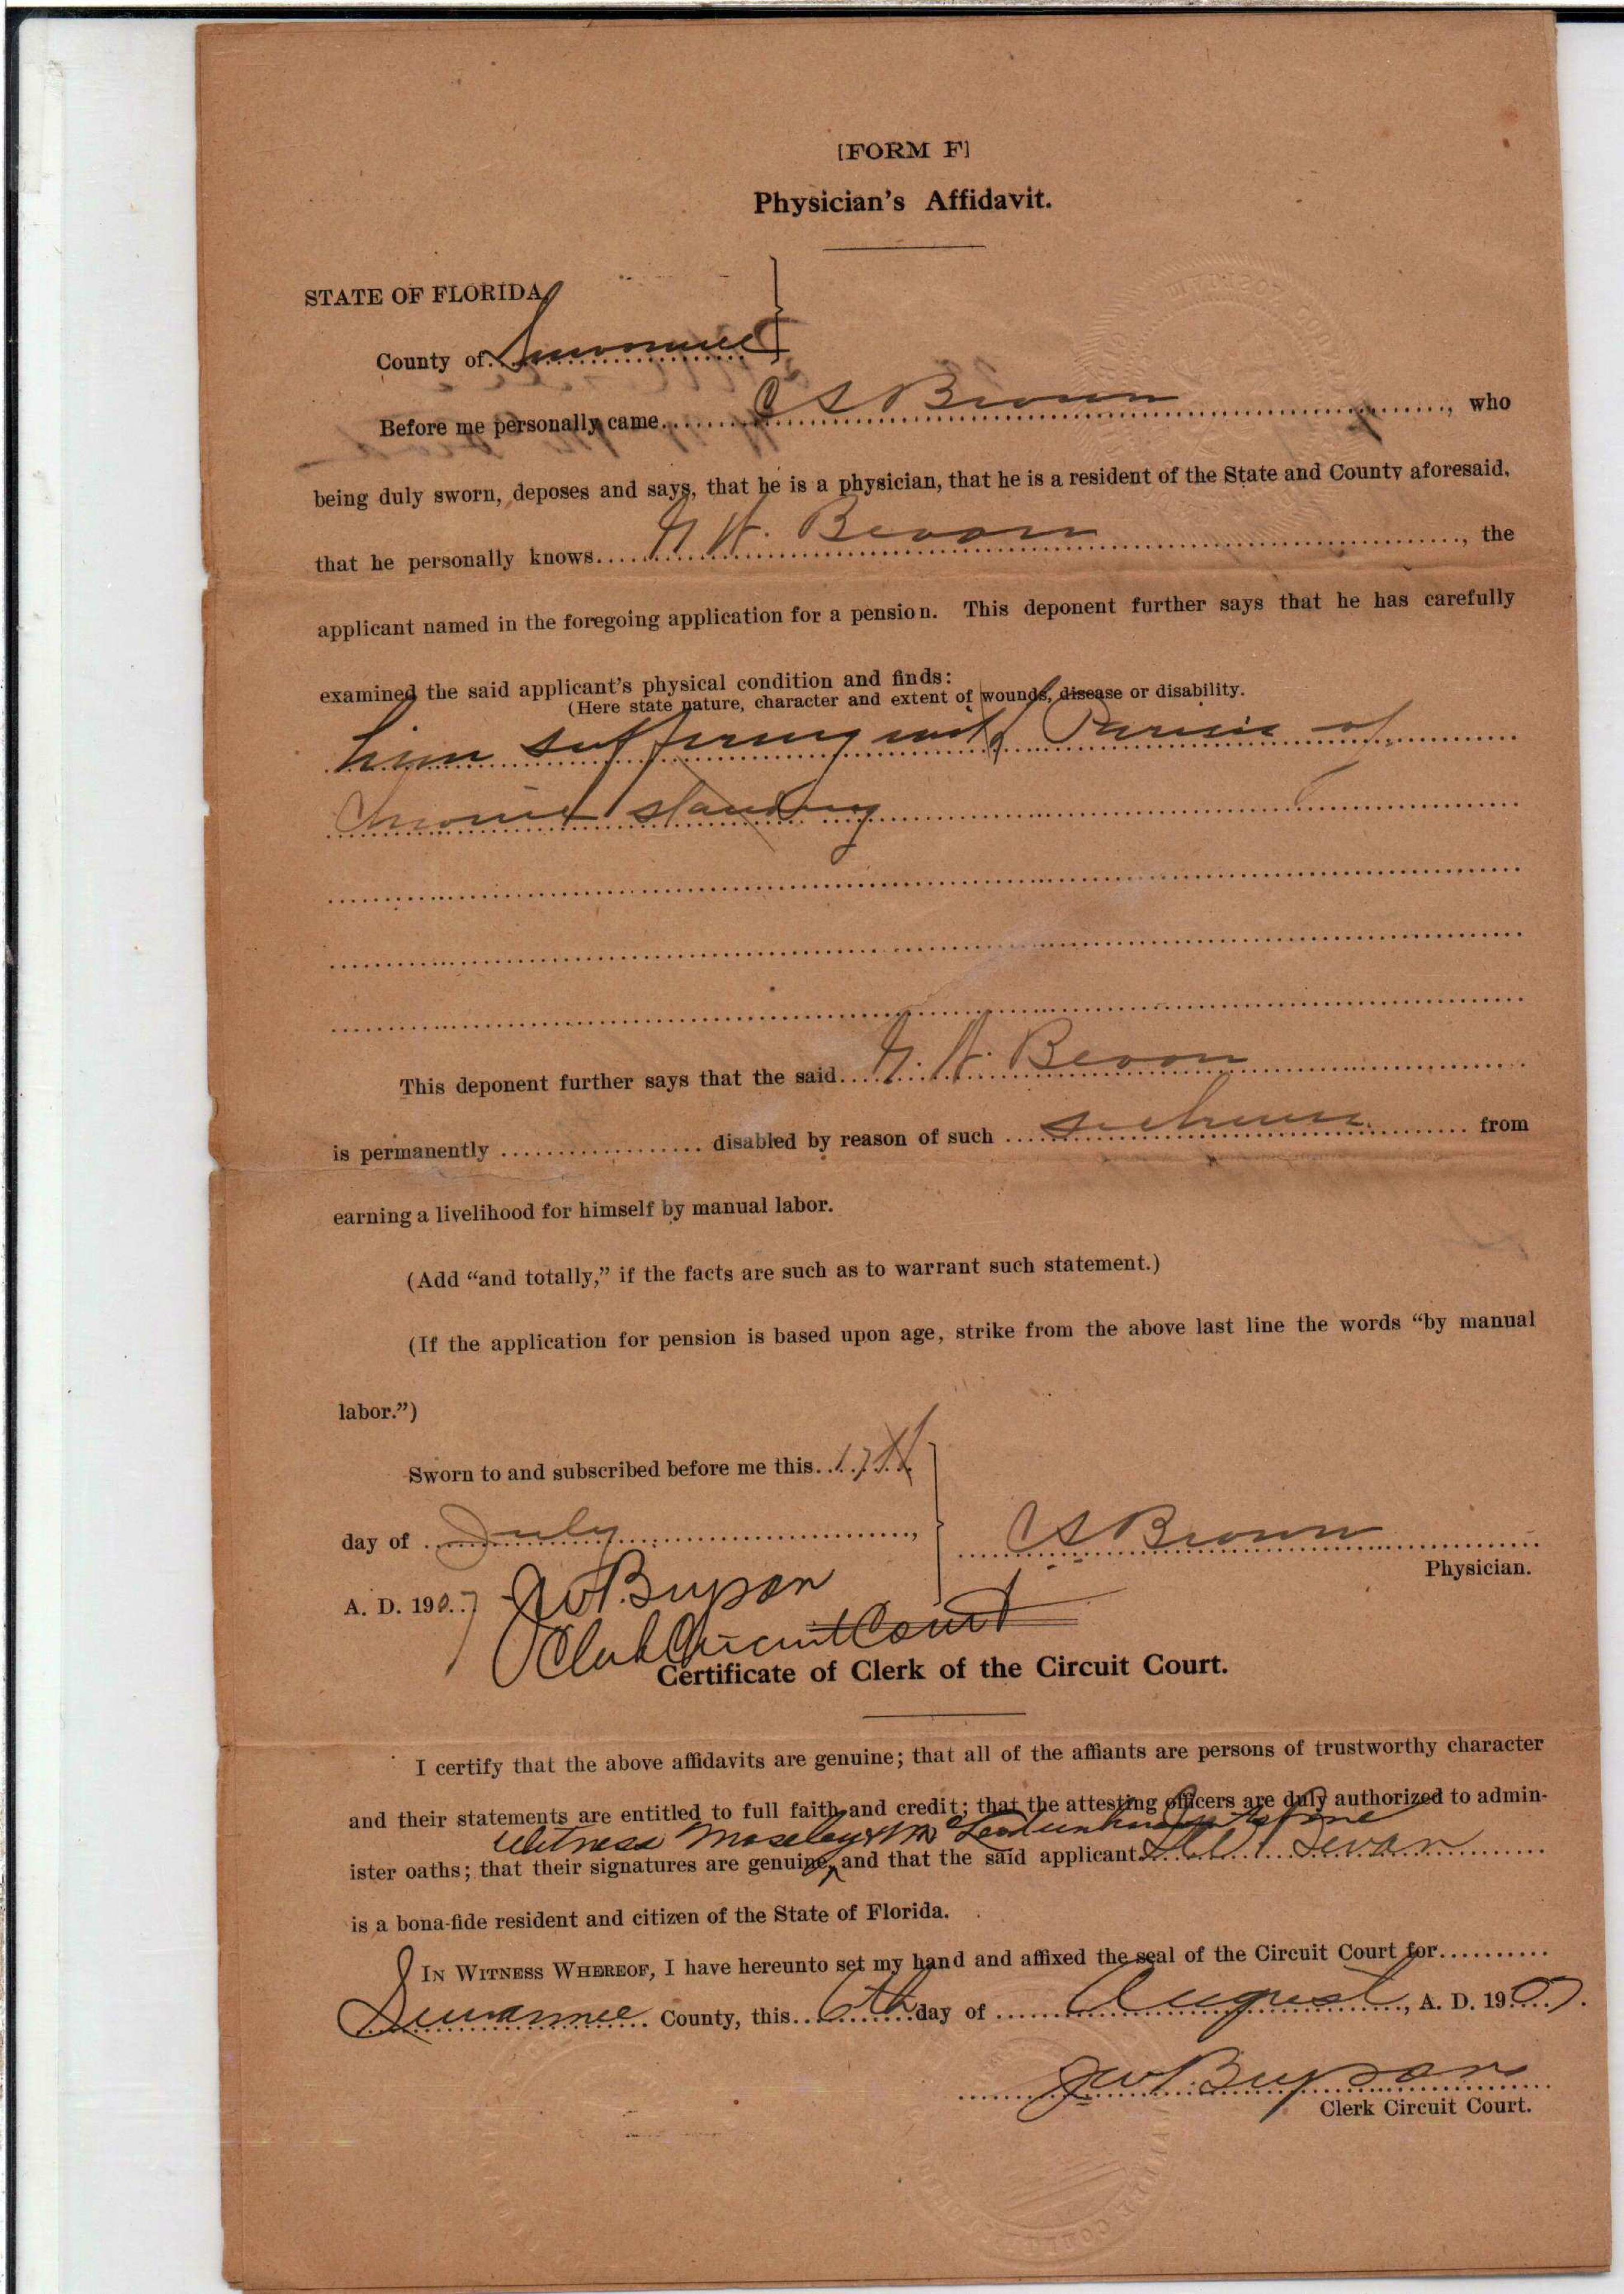 [FORM F]
Physician's Affidavit.
STATE OF FLORIDA,
County of Suwannee
Before me personally came C S Brown, who
being duly sworn, deposes and says, that he is a physician, that he is a resident of the State and County aforesaid,
that he personally knows H. , the
applicant named in the foregoing application for a pension. This deponent further says that he has carefully
examined the said applicant's physical condition and finds:
(Here state nature, character and extent of wounds, disease or disability.
him suffering with of
standing
This deponent further says that the said H.
is permanently disabled by reason of such from
earning a livelihood for himself by manual labor.
(Add "and totally," if the facts are such as to warrant such statement.)
(If the application for pension is based upon age, strike from the above last line the words "by manual
labor.")
Sworn to and subscribed before me this 17th
day of July,
C S Brown
Physician.
A. D. 1907 J W Bryson
Clerk Circuit Court
Certificate of Clerk of the Circuit Court.
I certify that the above affidavits are genuine; that all of the affiants are persons of trustworthy character
and their statements are entitled to full faith and credit; that the attesting officers are duly authorized to admin-
Witness Moseley & unknown to me
ister oaths; that their signatures are genuine, and that the said applicant
is a bona-fide resident and citizen of the State of Florida.
IN WITNESS WHEREOF, I have hereunto set my hand and affixed the seal of the Circuit Court for
Suwannee County, this 6th day of August, A. D. 1907.
J W Bryson
Clerk Circuit Court.